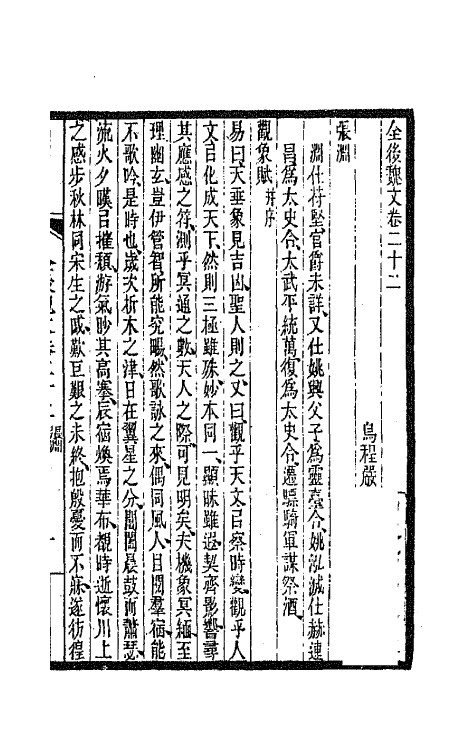 全後魏文卷二十二
烏程嚴
張淵
淵仕苻堅官爵未詳又仕姚興父子爲靈臺令姚泓滅仕赫連
昌爲太史令太武平統萬復爲太史令遷驃騎軍謀祭酒
觀象賦并序
易曰天垂象見吉凶聖人則之又曰觀乎天文㠯察時變觀乎人
文㠯化成天下然則三極雖殊妙本同一顯昧雖遐契齊影響尋
其應感之符測乎冥通之數天人之際可見明矣夫機象冥緬至
理幽玄豈伊管智所能究暢然歌詠之來偶同風人目閱羣宿能
不歌吟是時也歲次析木之津日在翼星之分閶闔晨鼓而蕭瑟
流火夕暵㠯摧穨游氣眇其高搴辰宿煥焉華布覩時逝懷川上
之感步秋林同宋生之戚歎巨艱之未終抱殷憂而不寐遂彷徨
張淵
一